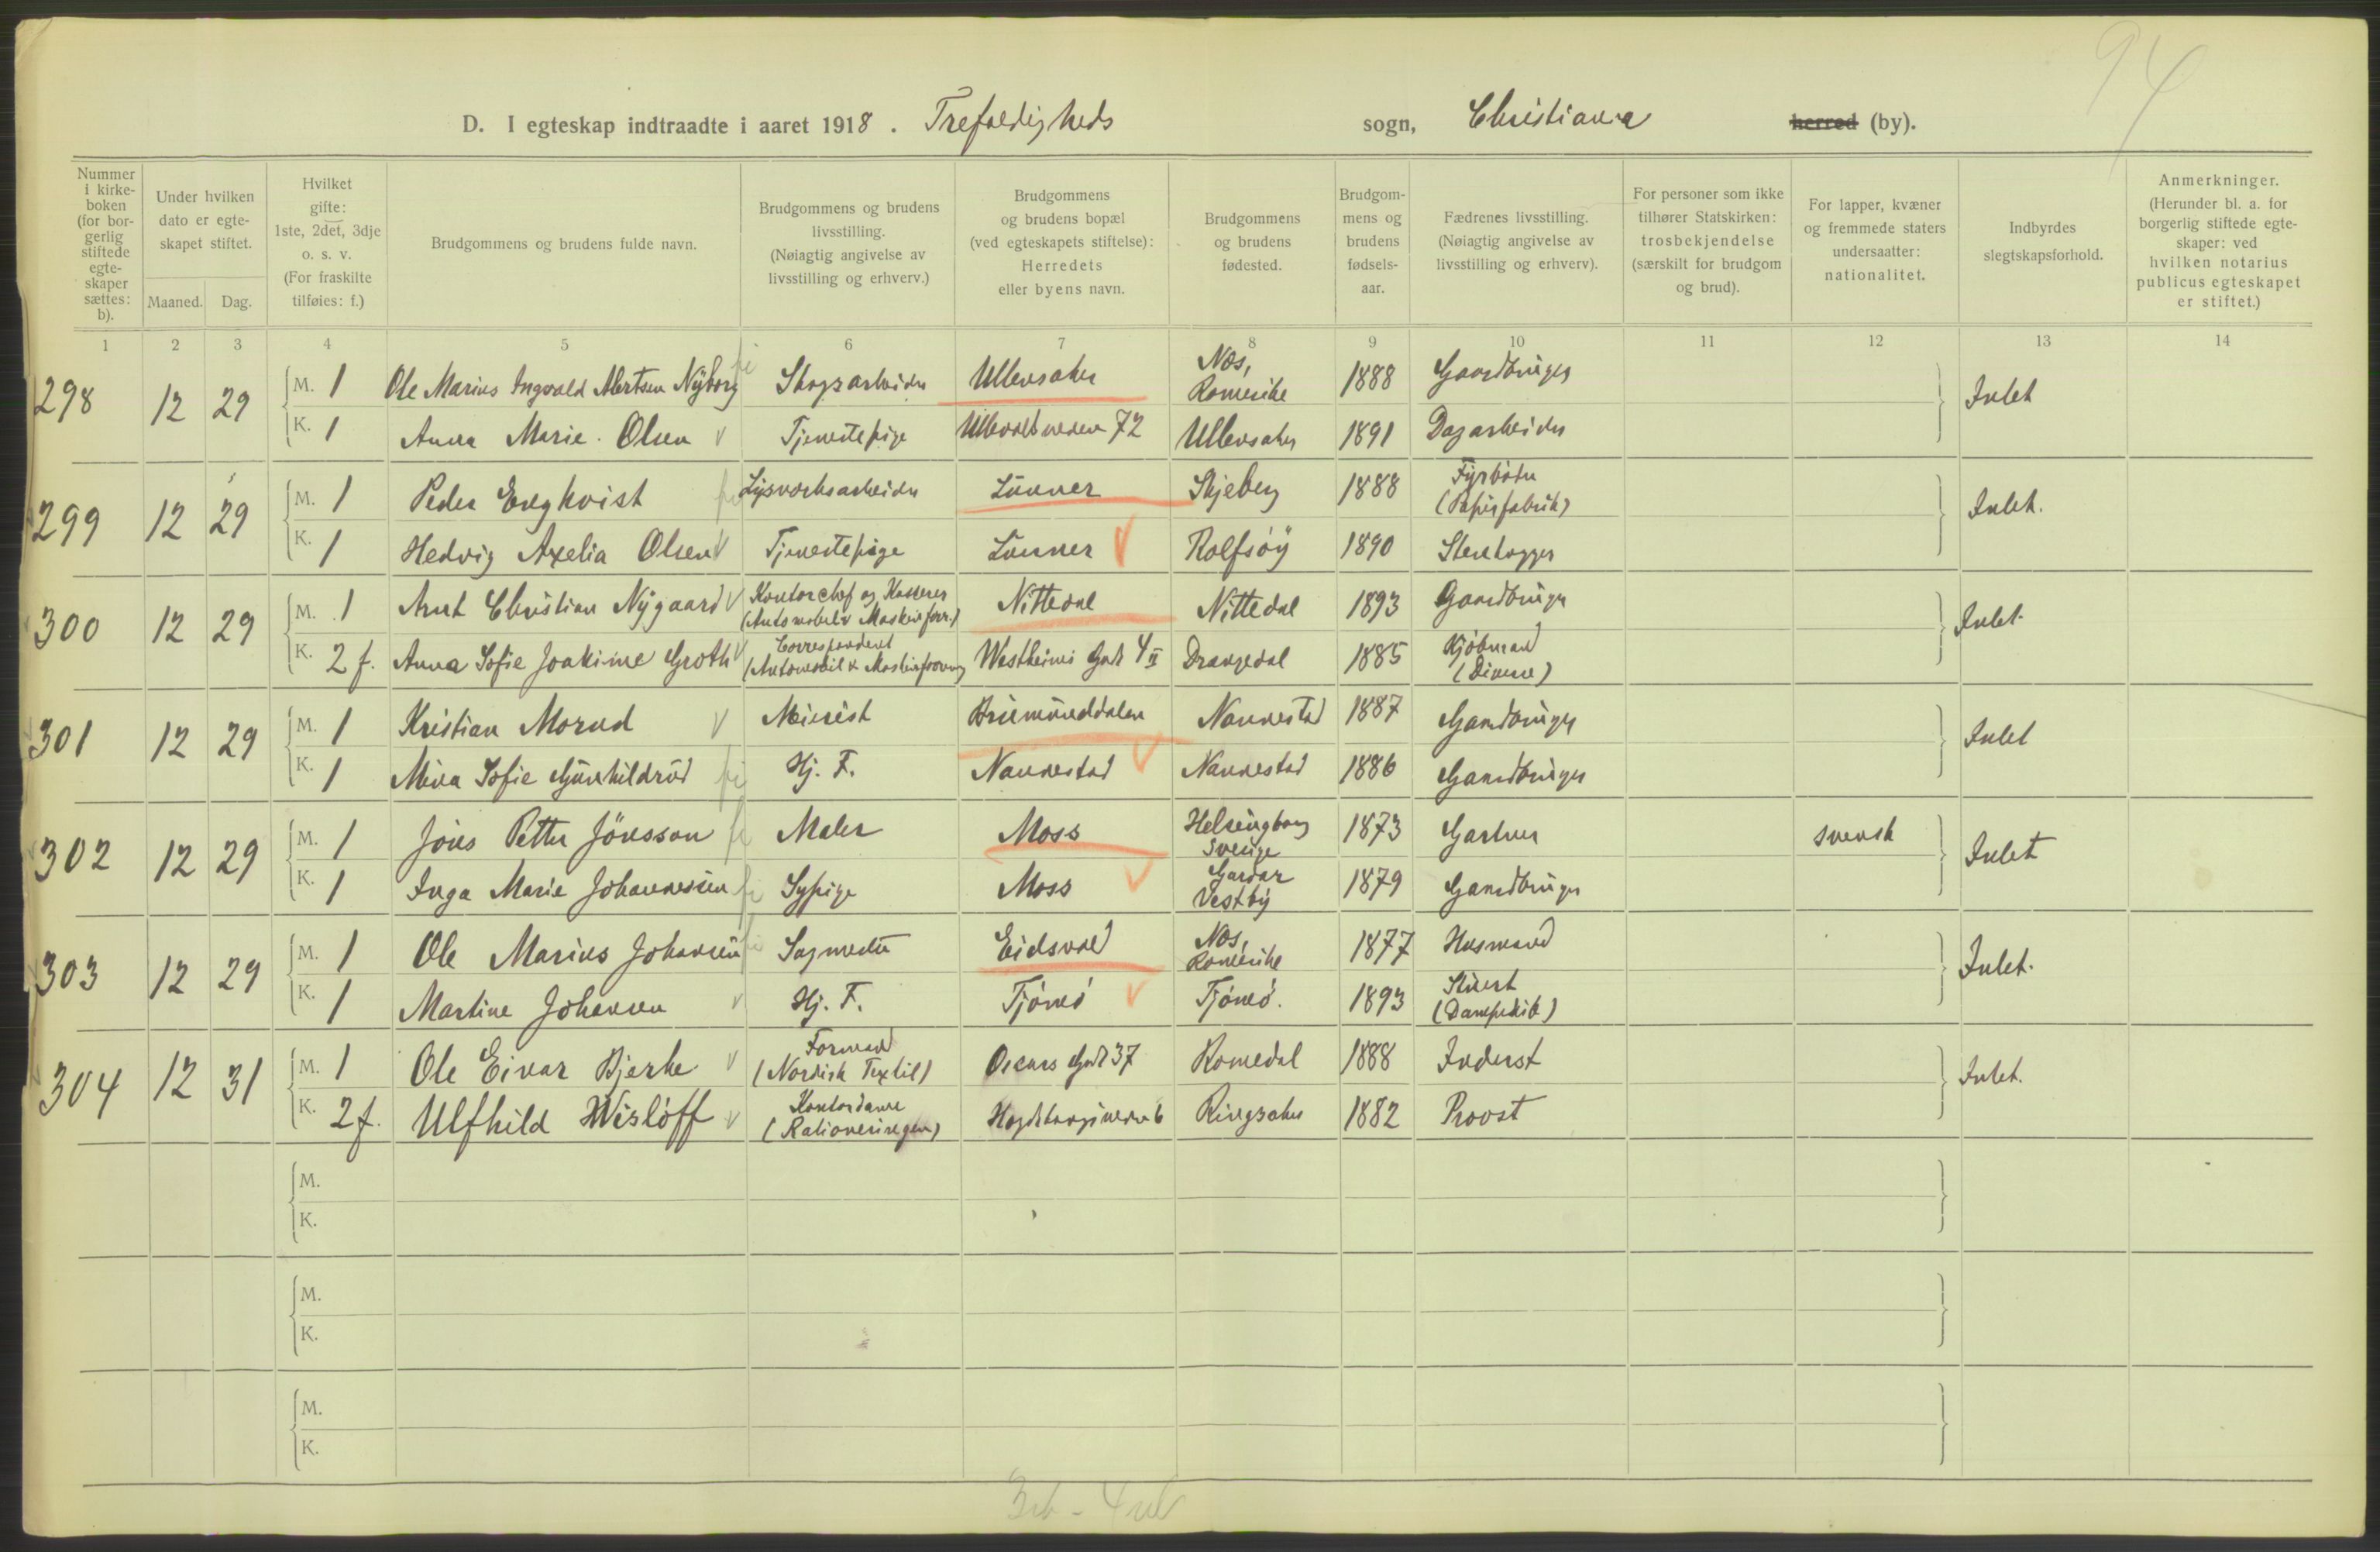 94
D. I egteskap indtraadte i aaret 1918. Trefoldigheds sogn, Christiania herred (by).
Nummer i kirke-boken (for bor-gerlig stiftede egte-skaper sættes: b).
Under hvilken dato er egte-skapet stiftet.
Maaned. Dag.
Hvilket gifte: 1ste, 2det, 3dje o. s. v. (For fraskilte tilføies: f.)
Brudgommens og brudens fulde navn.
Brudgommens og brudens livsstilling. (Nøiagtig angivelse av livsstilling og erhverv.)
Brudgommens og brudens bopæl (ved egteskapets stiftelse): Herredets eller byens navn.
Brudgommens og brudens fødested.
Brudgom-mens og brudens fødsels-aar.
Fædrenes livsstilling. (Nøiagtig angivelse av livsstilling og erhverv).
For personer som ikke tilhører Statskirken: trosbekjendelse (særskilt for brudgom og brud).
For lapper, kvæner og fremmede staters undersaatter: nationalitet.
Indbyrdes slegtskapsforhold.
Anmerkninger. (Herunder bl. a. for borgerlig stiftede egte-skaper: ved hvilken notarius publicus egteskapet er stiftet.)
1 2 3 4 5 6 7 8 9 10 11 12 13 14
298 12 29 M. 1 Ole Marius Ingvald Mortsen Nyborg Skogsarbeider Ullensaker Nes, Romerike 1888 Gaardbruger Intet
K. 1 Anna Marie Olsen Tjenestepige Ullevoldsveien 72 Ullensaker 1891 Dagarbeider
299 12 29 M. 1 Peder Engkvist Lysverksarbeider Lunner Skjeberg 1888 Fyrbøter (Papirfabrik) Intet.
K. 1 Hedvig Axelia Olsen Tjenestepige Lunner Rolfsøy 1890 Stenhogger
300 12 29 M. 1 Arnt Christian Nygaard Kontorchef og Kasserer (Automobil & Maskinforr.) Nittedal Nittedal 1893 Gaardbruger Intet.
K. 2 f. Anna Sofie Joakime Groth Correspondent (Automobil & Maskinforretng) Westheims Gade 4 II Drangedal 1885 Kjøbmand (Diverse)
301 12 29 M. 1 Kristian Morud Meierist Brumunddalen Nannestad 1887 Gaardbruger Intet
K. 1 Mina Sofie Gunhildrud Hj. F. Nannestad Nannestad 1886 Gaardbruger
302 12 29 M. 1 Jöns Petter Jönsson Maler Moss Helsingborg Sverige 1873 Gartner svensk Intet
K. 1 Inga Marie Johannessen Sypige Moss Garder Vestby 1879 Gaardbruger
303 12 29 M. 1 Ole Marius Johansen Sagmester Eidsvold Nes, Romerike 1877 Husmand Intet.
K. 1 Martine Johansen Hj. F. Tjömö Tjömö. 1893 Stuert (Dampskib)
304 12 31 M. 1 Ole Einar Bjerke Formand (Nordisk Textil) Oscars Gade 37 Romedal 1888 Inderst Intet.
K. 2 f. Ulfhild Wisløff Kontordame (Rationeringen) Ringsaker 1882 Provst
M.
K.
M.
K.
M.
K.